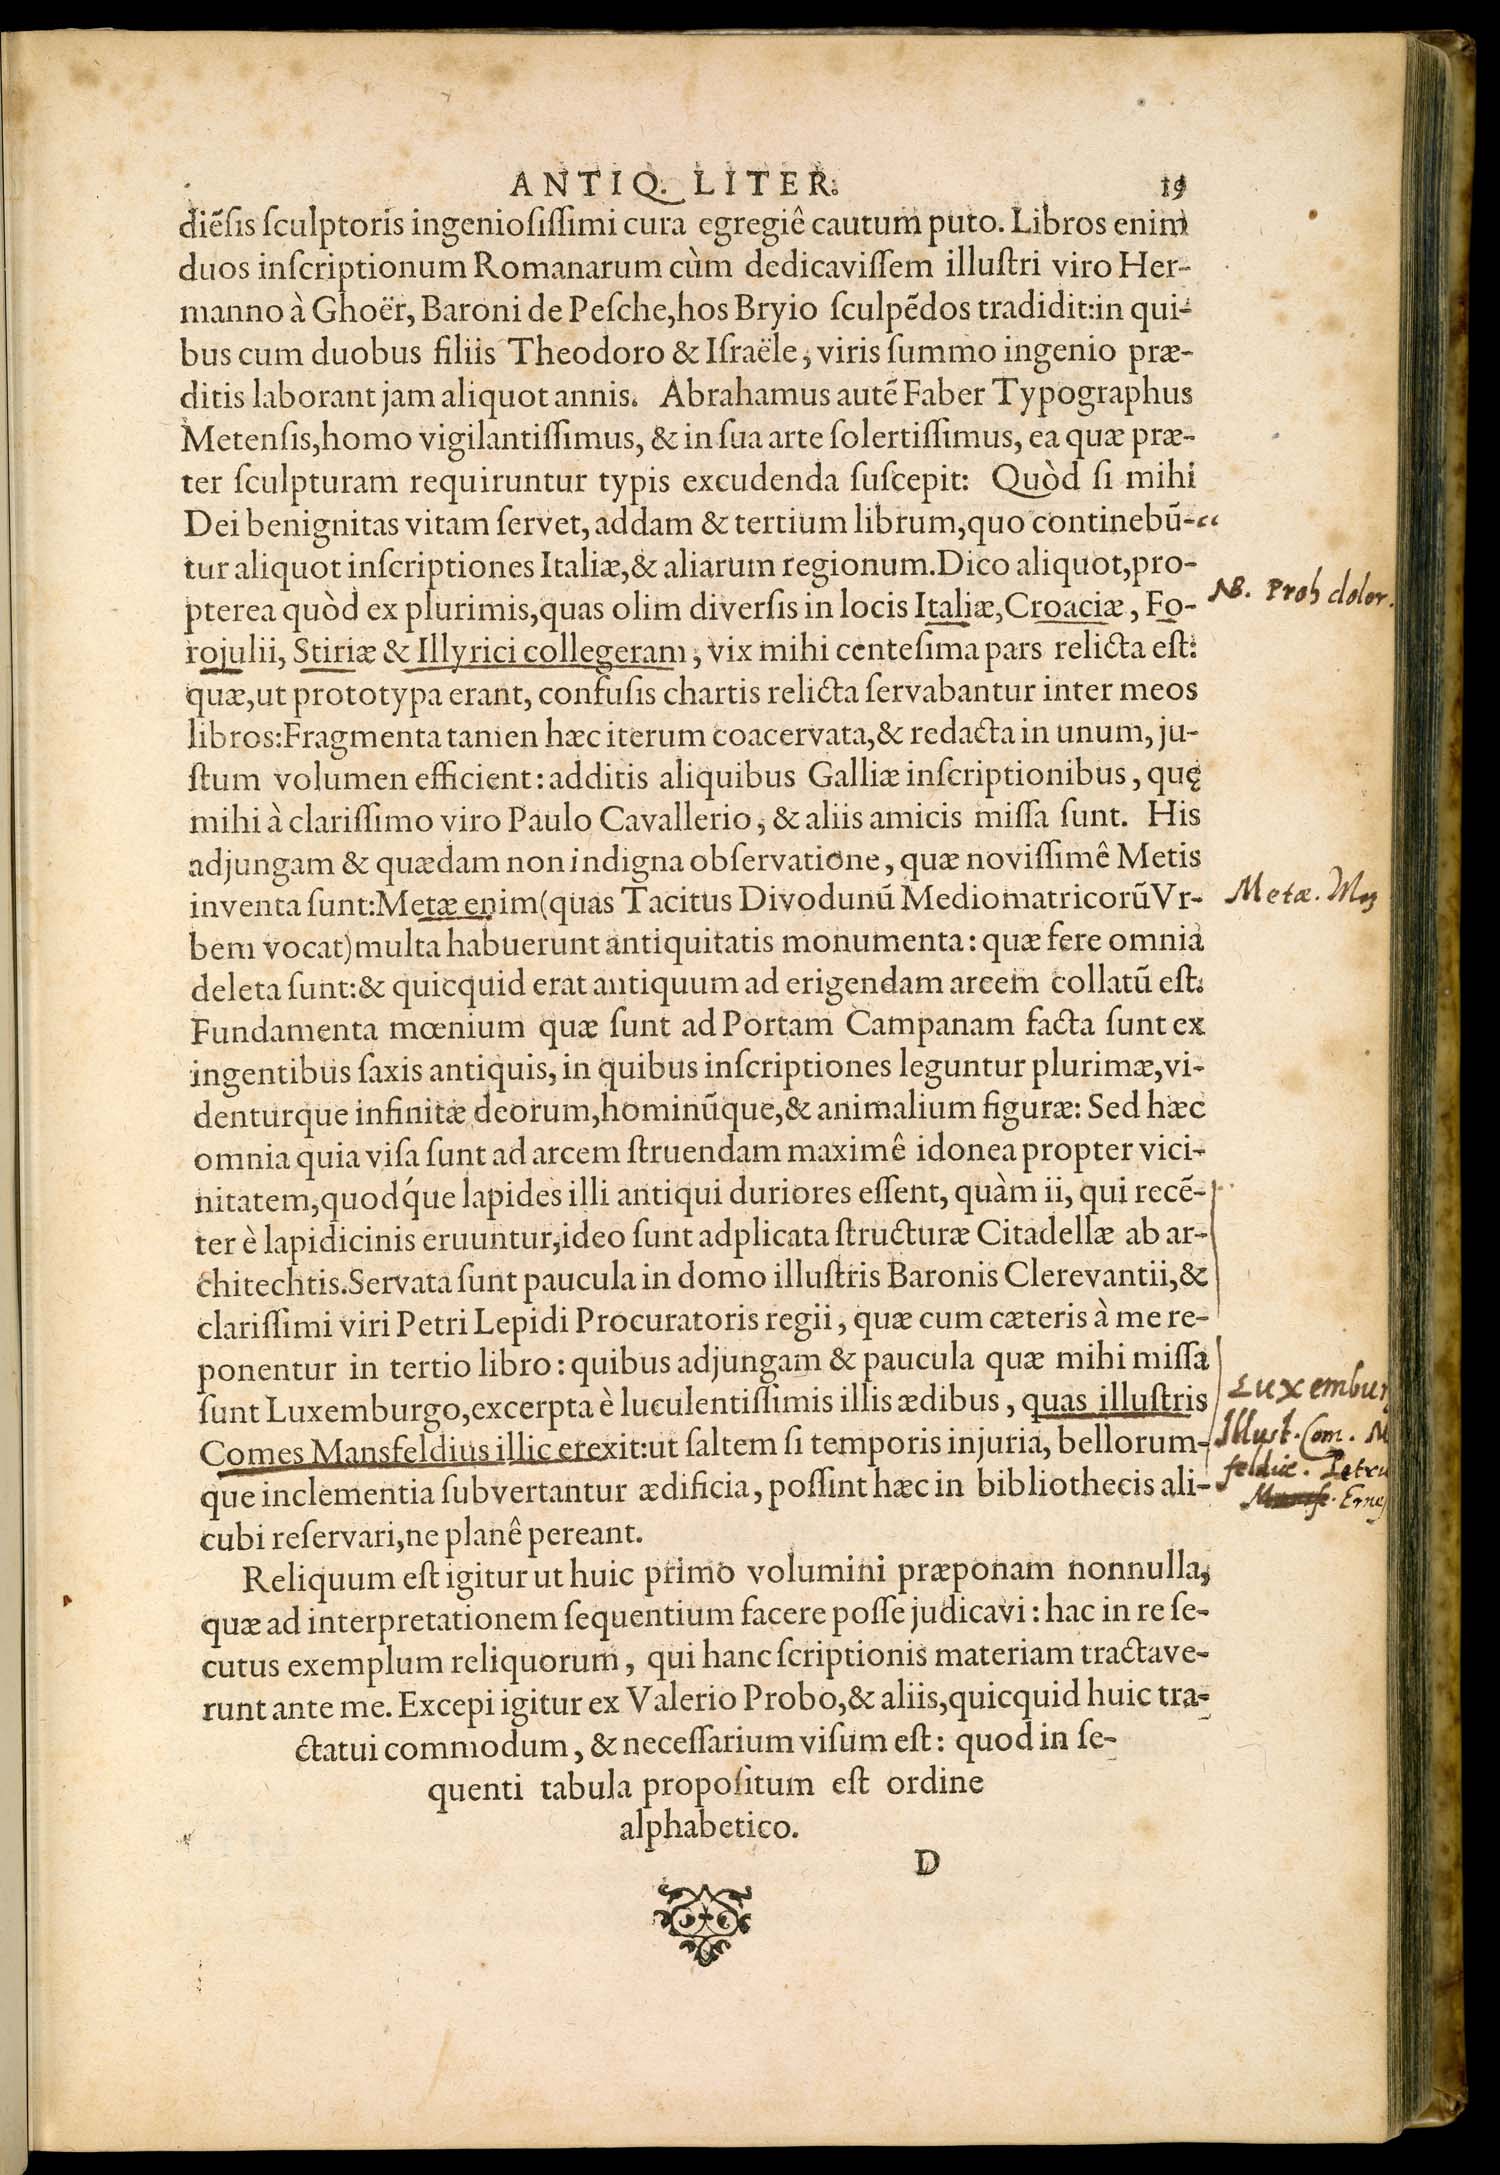 ANTIQ. LITER. 19
diẽſis ſculptoris ingenioſiſſimi cura egregiê cautum puto. Libros enim
duos inſcriptionum Romanarum cùm dedicaviſſem illuſtri viro Her-
manno à Ghoër, Baroni de Peſche, hos Bryio ſculpẽdos tradidit: in qui-
bus cum duobus filiis Theodoro & Iſraële, viris ſummo ingenio præ-
ditis laborant jam aliquot annis. Abrahamus autẽ Faber Typographus
Metenſis, homo vigilantiſſimus, & in ſua arte ſolertiſſimus, ea quæ præ-
ter ſculpturam requiruntur typis excudenda ſuſcepit: Quòd ſi mihi
Dei benignitas vitam ſervet, addam & tertium librum, quo continebũ-
tur aliquot inſcriptiones Italiæ, & aliarum regionum. Dico aliquot, pro-
pterea quòd ex plurimis, quas olim diverſis in locis Italiæ, Croaciæ, Fo-
NB. Proh dolor.
rojulii, Stiriæ & Illyrici collegeram, vix mihi centeſima pars relicta eſt:
quæ, ut prototypa erant, confuſis chartis relicta ſervabantur inter meos
libros: Fragmenta tamen hæc iterum coacervata, & redacta in unum, ju-
ſtum volumen efficient: additis aliquibus Galliæ inſcriptionibus, quę
mihi à clariſſimo viro Paulo Cavallerio, & aliis amicis miſſa ſunt. His
adjungam & quædam non indigna obſervatione, quæ noviſſimê Metis
inventa ſunt: Metæ enim (quas Tacitus Divodunũ Mediomatricorũ Vr-
Metæ.
bem vocat) multa habuerunt antiquitatis monumenta: quæ fere omnia
deleta ſunt: & quicquid erat antiquum ad erigendam arcem collatũ eſt.
Fundamenta mœnium quæ ſunt ad Portam Campanam facta ſunt ex
ingentibus ſaxis antiquis, in quibus inſcriptiones leguntur plurimæ, vi-
denturque infinitæ deorum, hominũque, & animalium figuræ: Sed hæc
omnia quia viſa ſunt ad arcem ſtruendam maximê idonea propter vici-
nitatem, quodq́ue lapides illi antiqui duriores eſſent, quàm ii, qui recẽ-
ter è lapidicinis eruuntur, ideo ſunt adplicata ſtructuræ Citadellæ ab ar-
chitechtis. Servata ſunt paucula in domo illuſtris Baronis Clerevantii, &
clariſſimi viri Petri Lepidi Procuratoris regii, quæ cum cæteris à me re-
ponentur in tertio libro: quibus adjungam & paucula quæ mihi miſſa
ſunt Luxemburgo, excerpta è luculentiſſimis illis ædibus, quas illuſtris
Luxembur
Comes Mansfeldius illic erexit: ut ſaltem ſi temporis injuria, bellorum-
Illust. Com. M
feldiæ. Petru
que inclementia ſubvertantur ædificia, poſſint hæc in bibliothecis ali-
Ernes
cubi reſervari, ne planê pereant.
Reliquum eſt igitur ut huic primo volumini præponam nonnulla,
quæ ad interpretationem ſequentium facere poſſe judicavi: hac in re ſe-
cutus exemplum reliquorum, qui hanc ſcriptionis materiam tractave-
runt ante me. Excepi igitur ex Valerio Probo, & aliis, quicquid huic tra-
ctatui commodum, & neceſſarium viſum eſt: quod in ſe-
quenti tabula propoſitum eſt ordine
alphabetico.
D